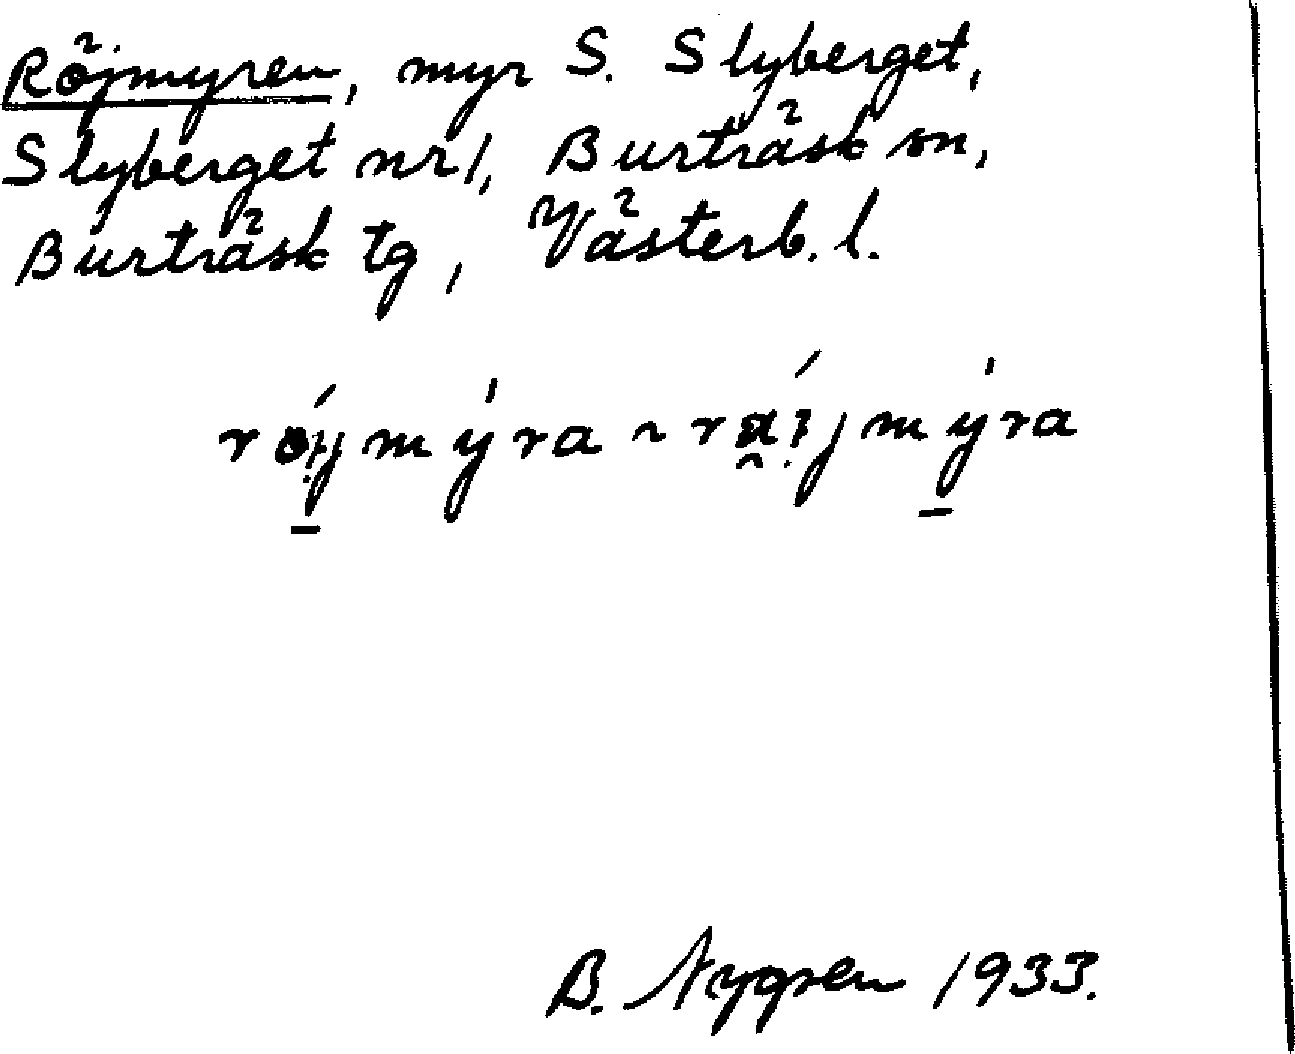 Röjmyren, myr S. Slyberget,
Slyberget nr 1, Burträsk sn,
Burträsk tg, Västerb. l.
B. Nygren 1933.